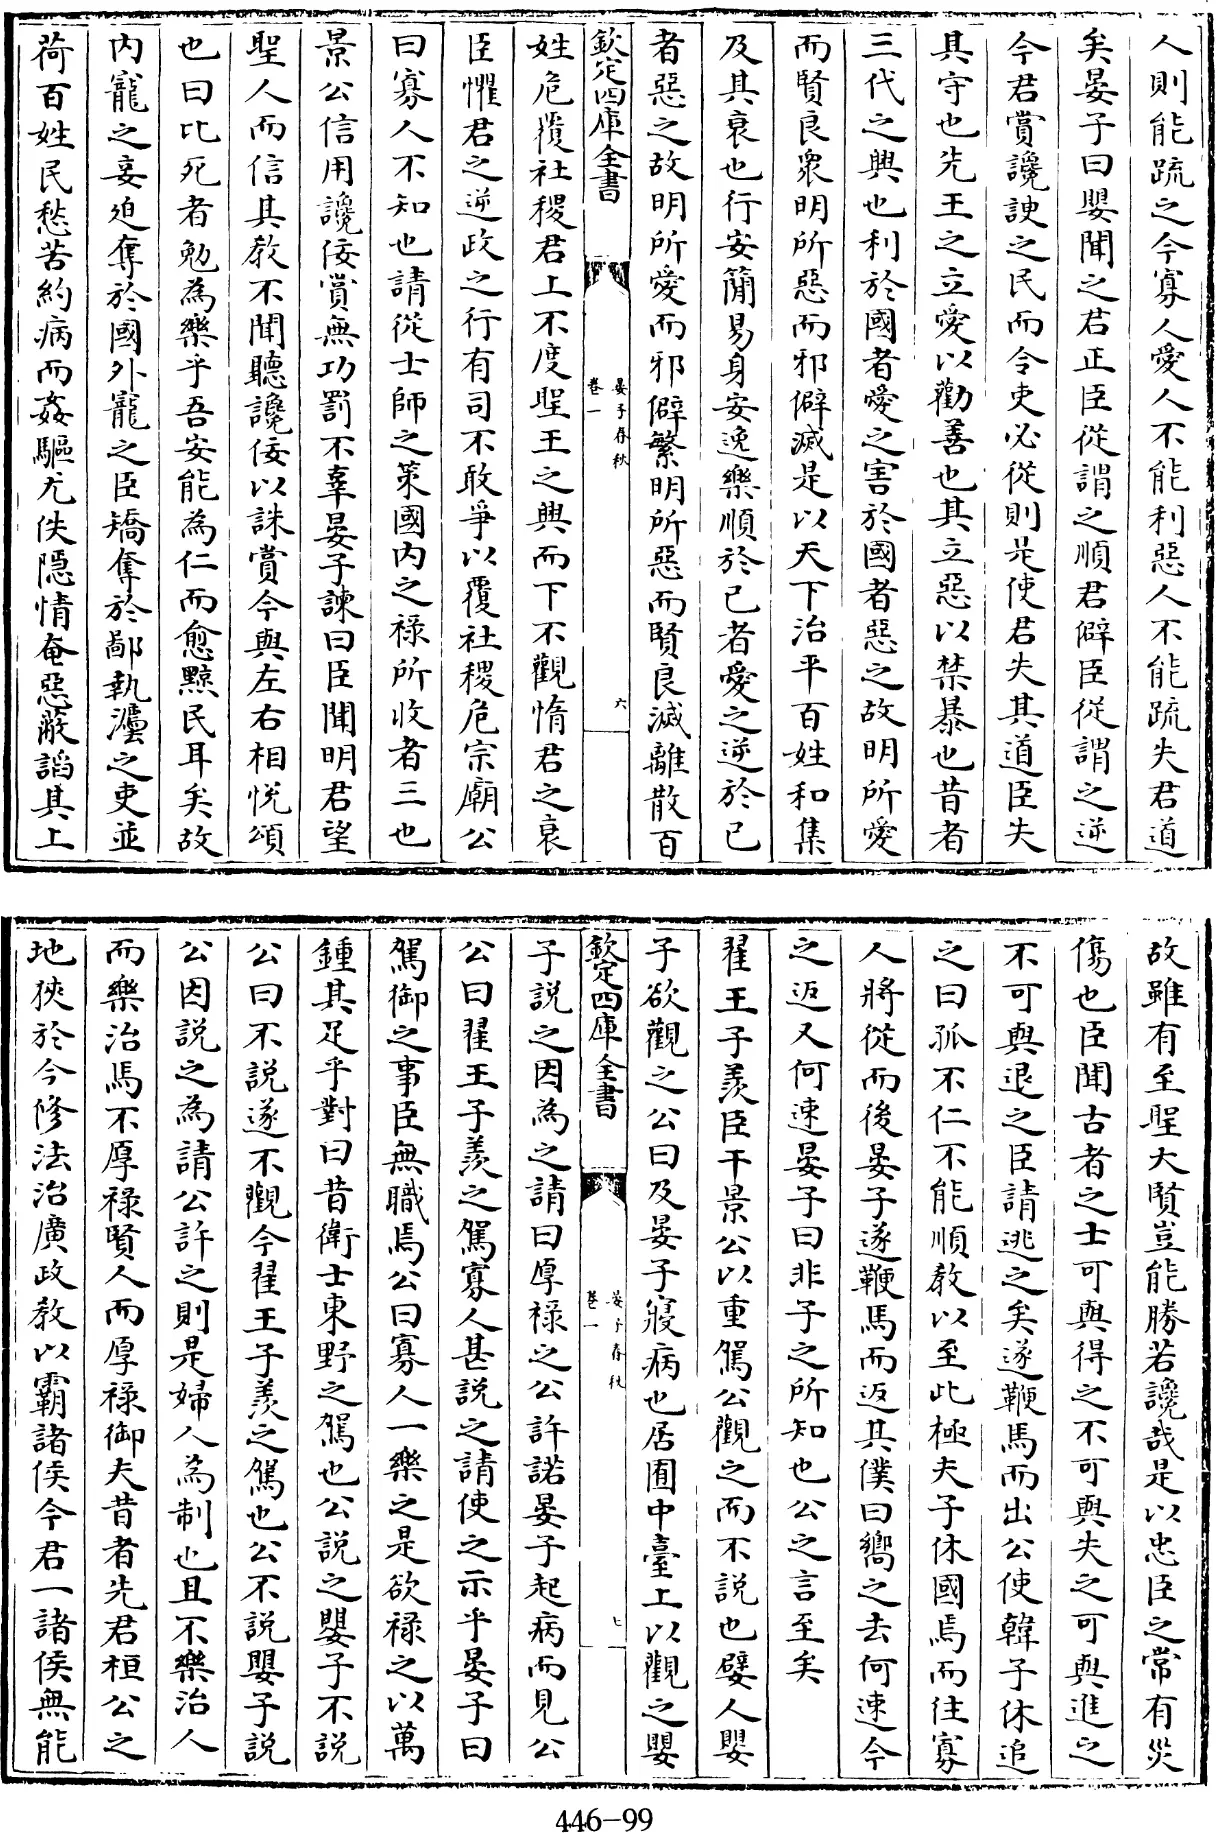 人則能疏之今寡人愛人不能利惡人不能疏失君道
矣晏子曰嬰聞之君正臣從謂之順君僻臣從謂之逆
今君賞讒諛之民而令吏必從則是使君失其道臣失
其守也先王之立愛以勸善也其立惡以禁暴也昔者
三代之興也利於國者愛之害於國者惡之故明所愛
而賢良衆明所惡而邪僻滅是以天下治平百姓和集
及其衰也行安簡易身安逸樂順於已者愛之逆於已
者惡之故明所愛而邪僻繁明所惡而賢良滅離散百
欽定四庫全書
晏子春秋
卷一
六
姓危覆社稷君上不度聖王之興而下不觀惰君之衰
臣懼君之逆政之行有司不敢爭以覆社稷危宗廟公
曰寡人不知也請從士師之策國内之祿所收者三也
景公信用讒佞賞無功罰不辜晏子諫曰臣聞明君望
聖人而信其敎不聞聽讒佞以誅賞今與左右相悅頌
也曰比死者勉為樂乎吾安能為仁而愈黥民耳矣故
内寵之妾廹奪於國外寵之臣矯奪於鄙執灋之吏並
荷百姓民愁苦約病而姦驅尤佚隠情奄惡蔽諂其上
故雖有至聖大賢豈能勝若讒哉是以忠臣之常有災
傷也臣聞古者之士可與得之不可與失之可與進之
不可與退之臣請逃之矣遂鞭馬而出公使韓子休追
之曰孤不仁不能順敎以至此極夫子休國焉而往寡
人將從而後晏子遂鞭馬而返其僕曰嚮之去何速今
之返又何速晏子曰非子之所知也公之言至矣
翟王子羨臣干景公以重駕公觀之而不說也嬖人嬰
子欲觀之公曰及晏子寢病也居囿中臺上以觀之嬰
欽定四庫全書
晏子春秋
卷一
七
子說之因為之請曰厚祿之公許諾晏子起病而見公
公曰翟王子羨之駕寡人甚說之請使之示乎晏子曰
駕御之事臣無職焉公曰寡人一樂之是欲祿之以萬
鍾其足乎對曰昔衛士東野之駕也公說之嬰子不說
公曰不說遂不觀今翟王子羨之駕也公不說嬰子說
公因說之為請公許之則是婦人為制也且不樂治人
而樂治馬不厚祿賢人而厚祿御夫昔者先君桓公之
地狹於今修法治廣政敎以霸諸侯今君一諸侯無能
446-99